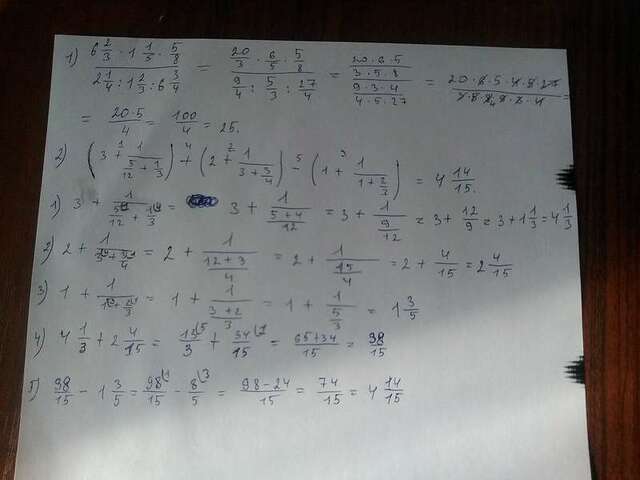 1) (6 2/3 · 1 1/5 · 5/8) / (2 1/4 : 1 2/3 : 6 3/4) = (20/3 · 6/5 · 5/8) / (9/4 : 5/3 : 27/4) = ((20·6·5)/(3·5·8)) / ((9·3·4)/(4·5·27)) =
= (20·5)/4 = 100/4 = 25.
2) (3 + 1/(5/12 + 1/3)) + (2 + 1/(3 + 3/4)) - (1 + 1/(1 + 2/3)) = 4 14/15.
1) 3 + 1/(5/12 + 1/3) = 3 + 1/((5+4)/12) = 3 + 1/(9/12) = 3 + 12/9 = 3 + 1 1/3 = 4 1/3
2) 2 + 1/(3 + 3/4) = 2 + 1/((12+3)/4) = 2 + 1/(15/4) = 2 + 4/15 = 2 4/15
3) 1 + 1/(1 + 2/3) = 1 + 1/((3+2)/3) = 1 + 1/(5/3) = 1 3/5
4) 4 1/3 + 2 4/15 = 13/3 + 34/15 = (65+34)/15 = 98/15
5) 98/15 - 1 3/5 = 98/15 - 8/5 = (98-24)/15 = 74/15 = 4 14/15